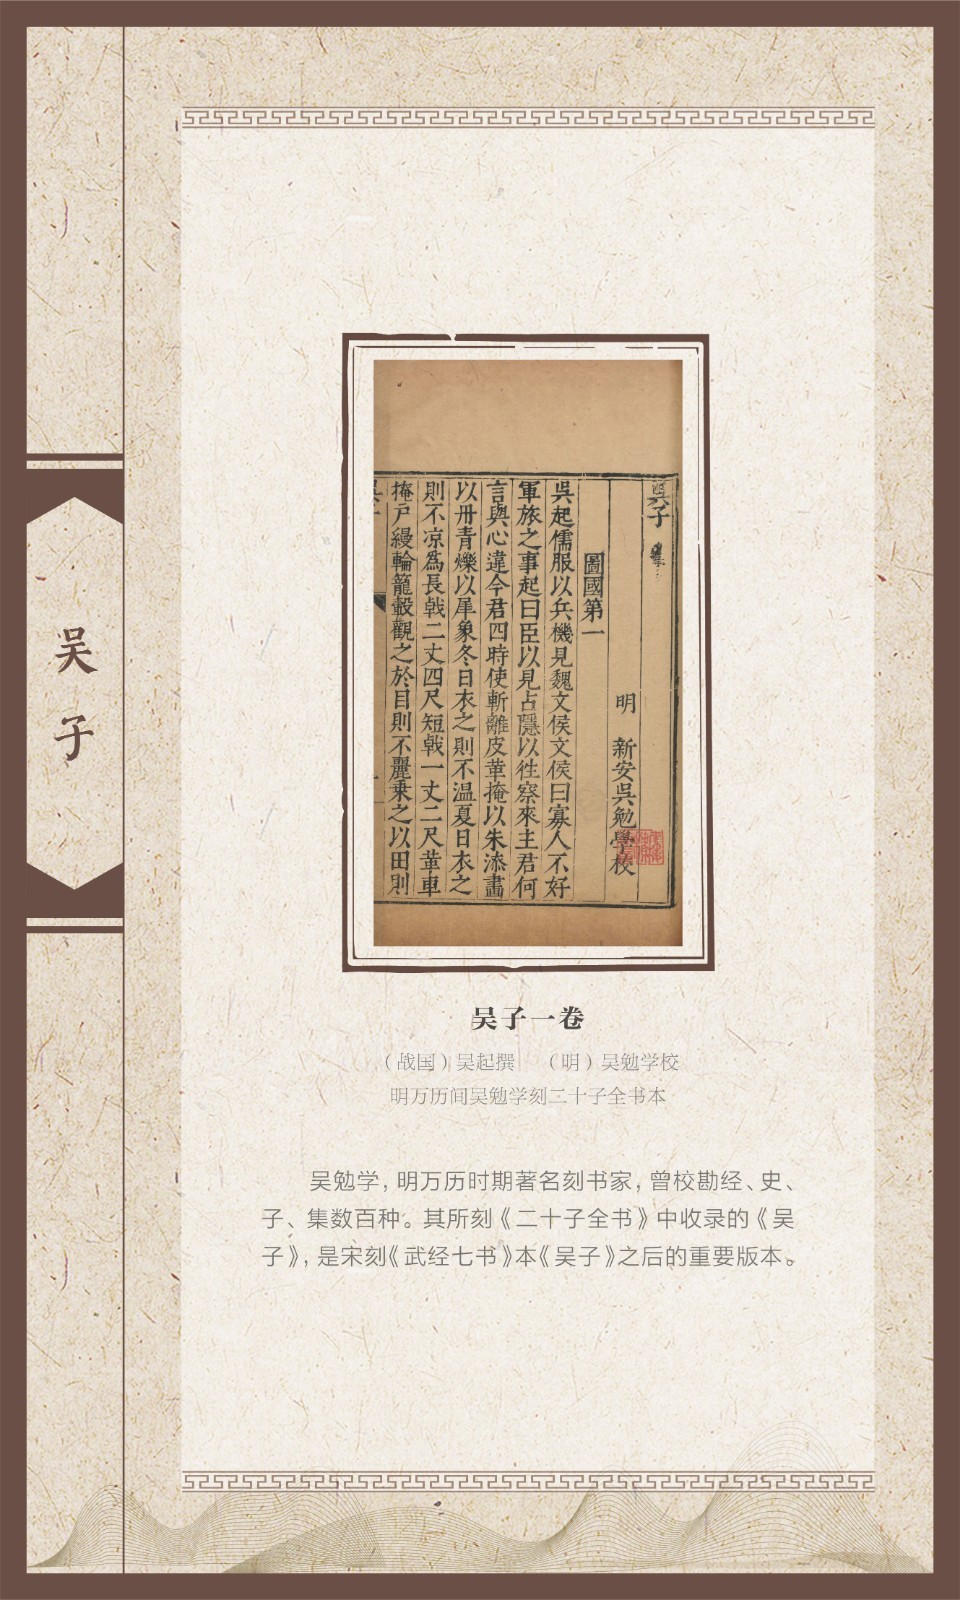 吴子
吳子
明 新安吳勉學校
圖國第一
吳起儒服以兵機見魏文侯文侯曰寡人不好
軍旅之事起曰臣以見占隱以徃察來主君何
言與心違今君四時使斬離皮革掩以朱漆畫
以丹青爍以犀象冬日衣之則不温夏日衣之
則不凉爲長戟二丈四尺短戟一丈二尺革車
掩戸縵輪籠轂觀之於目則不麗乗之以田則
吴子一卷
（战国）吴起撰 （明）吴勉学校
明万历间吴勉学刻二十子全书本
吴勉学，明万历时期著名刻书家，曾校勘经、史、
子、集数百种。其所刻《二十子全书》中收录的《吴
子》，是宋刻《武经七书》本《吴子》之后的重要版本。